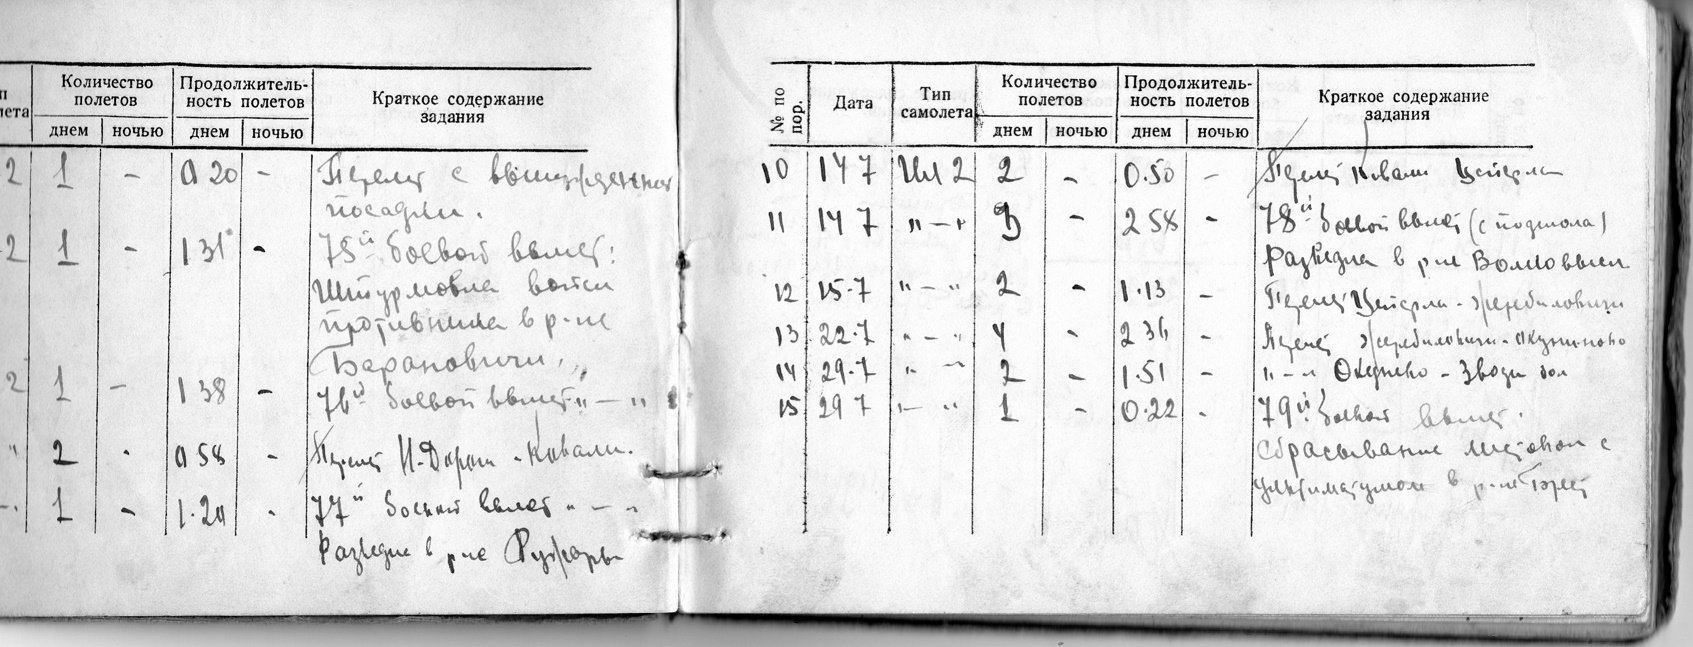 п
лета
Количество
полетов
Продолжитель-
ность полетов
Краткое содержание
задания
днем ночью днем ночью
2 1 - 0 20 - Перелет с вынужденной
посадки.
2 1 - 1 31 - 75й боевой вылет:
Штурмовка войск
противника в р-не
Барановичи.
2 1 - 1 38 - 76й боевой вылет " — "
" 2 - 0 58 - Перелет - Ковали.
1 - 1.20 - 77й боевой вылет " — "
Разведка в р-не
№ по
пор.
Дата
Тип
самолета
Количество
полетов
Продолжитель-
ность полетов
Краткое содержание
задания
днем ночью днем ночью
10 14 7 Ил 2 2 - 0.50 - Перелет Ковали
11 14 7 " — " - 2 58 - 78й боевой вылет (с )
Разведка в р-не Волковыск
12 15.7 " — " 2 - 1.13 - Перелет - Жеребиловичи
13 22.7 " — " 4 - 2 36 - Перелет Жеребиловичи - Окуниново
14 29.7 " — " 2 - 1.51 - " — " -
15 29 7 " — " 1 - 0.22 - 79й боевой вылет.
Сбрасывание листовок с
ультиматумом в р-не Брест